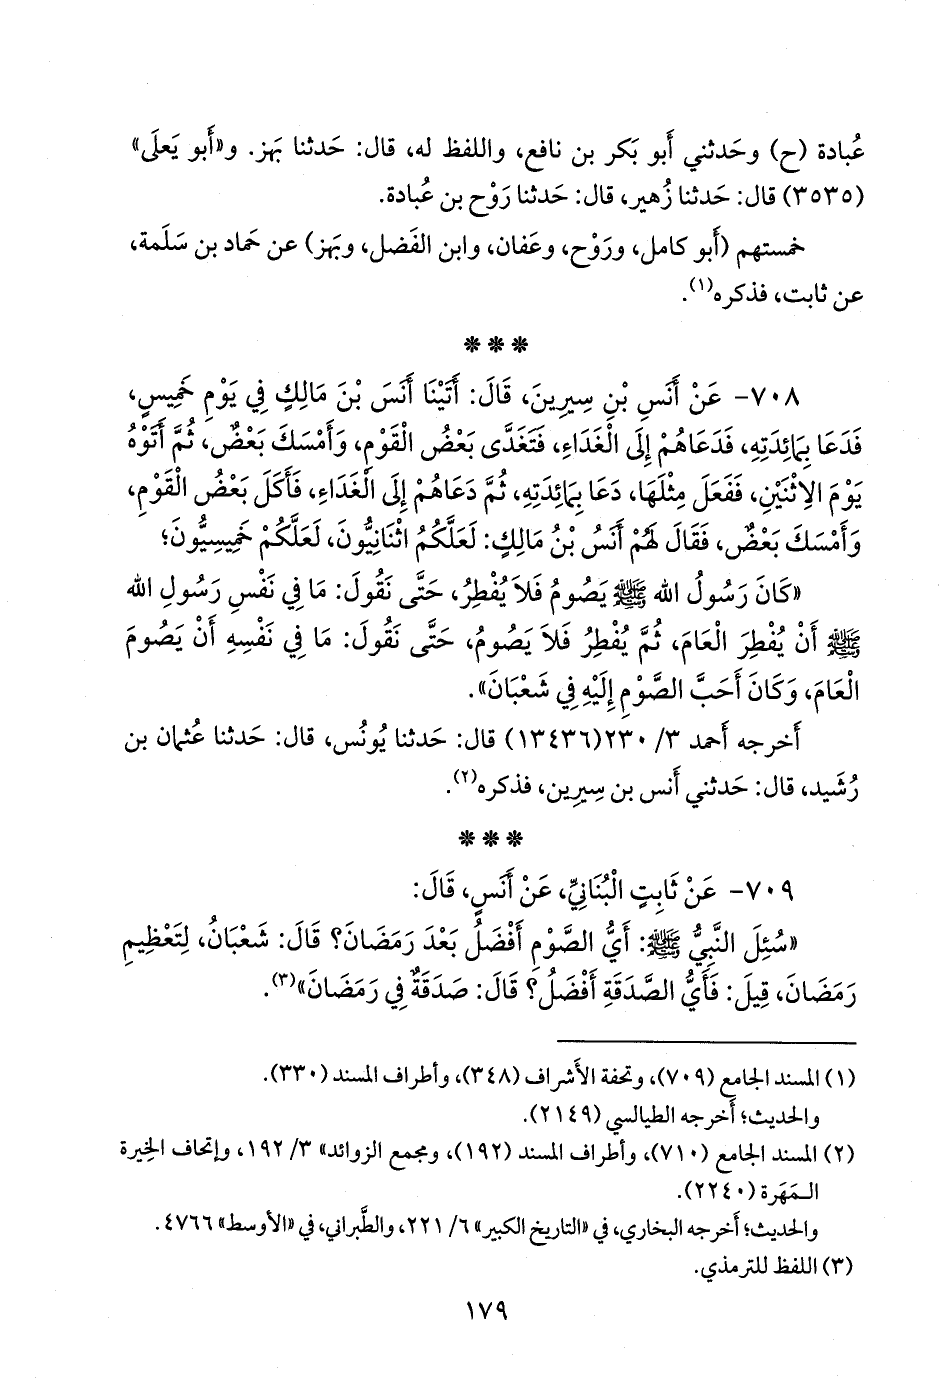 عُبادة (ح) وحَدثني أَبو بَكر بن نافع، واللفظ له، قال: حَدثنا بَهز. و«أَبو يَعلَى»
(٣٥٣٥) قال: حَدثنا زُهير، قال: حَدثنا رَوْح بن عُبادة.
خمستهم (أَبو كامل، ورَوْح، وعَفان، وابن الفَضل، وبَهز) عن حَماد بن سَلَمة،
عن ثابت، فذكره(١).
***
٧٠٨- عَنْ أَنَسِ بْنِ سِيرِينَ، قَالَ: أَتَيْنَا أَنَسَ بْنَ مَالِكٍ فِي يَوْمِ خَمِيسٍ،
فَدَعَا بِمَائِدَتِهِ، فَدَعَاهُمْ إِلَى الْغَدَاءِ، فَتَغَدَّى بَعْضُ الْقَوْمِ، وَأَمْسَكَ بَعْضٌ، ثُمَّ أَتَوْهُ
يَوْمَ الِاثْنَيْنِ، فَفَعَلَ مِثْلَهَا، دَعَا بِمَائِدَتِهِ، ثُمَّ دَعَاهُمْ إِلَى الْغَدَاءِ، فَأَكَلَ بَعْضُ الْقَوْمِ،
وَأَمْسَكَ بَعْضٌ، فَقَالَ لَهُمْ أَنَسُ بْنُ مَالِكٍ: لَعَلَّكُمُ اثْنَانِيُّونَ، لَعَلَّكُمْ خَمِيسِيُّونَ؛
«كَانَ رَسُولُ الله ﷺ يَصُومُ فَلاَ يُفْطِرُ، حَتَّى نَقُولَ: مَا فِي نَفْسِ رَسُولِ الله
ﷺ أَنْ يُفْطِرَ الْعَامَ، ثُمَّ يُفْطِرُ فَلاَ يَصُومُ، حَتَّى نَقُولَ: مَا فِي نَفْسِهِ أَنْ يَصُومَ
الْعَامَ، وَكَانَ أَحَبَّ الصَّوْمِ إِلَيْهِ فِي شَعْبَانَ».
أَخرجه أَحمد ٣/ ٢٣٠(١٣٤٣٦) قال: حَدثنا يُونُس، قال: حَدثنا عُثمان بن
رُشَيد، قال: حَدثني أَنس بن سِيرِين، فذكره(٢).
***
٧٠٩- عَنْ ثَابِتٍ الْبُنَانِيِّ، عَنْ أَنَسٍ، قَالَ:
«سُئِلَ النَّبِيُّ ﷺ: أَيُّ الصَّوْمِ أَفْضَلُ بَعْدَ رَمَضَانَ؟ قَالَ: شَعْبَانُ، لِتَعْظِيمِ
رَمَضَانَ، قِيلَ: فَأَيُّ الصَّدَقَةِ أَفْضَلُ؟ قَالَ: صَدَقَةٌ فِي رَمَضَانَ»(٣).
(١) المسند الجامع (٧٠٩)، وتحفة الأَشراف (٣٤٨)، وأطراف المسند (٣٣٠).
والحديث؛ أَخرجه الطيالسي (٢١٤٩).
(٢) المسند الجامع (٧١٠)، وأطراف المسند (١٩٢)، ومجمع الزوائد» ٣/ ١٩٢، وإتحاف الخِيرة
المَهَرة (٢٢٤٠).
والحديث؛ أَخرجه البخاري، في «التاريخ الكبير» ٦/ ٢٢١، والطَّبراني، في «الأَوسط» ٤٧٦٦.
(٣) اللفظ للترمذي.
١٧٩